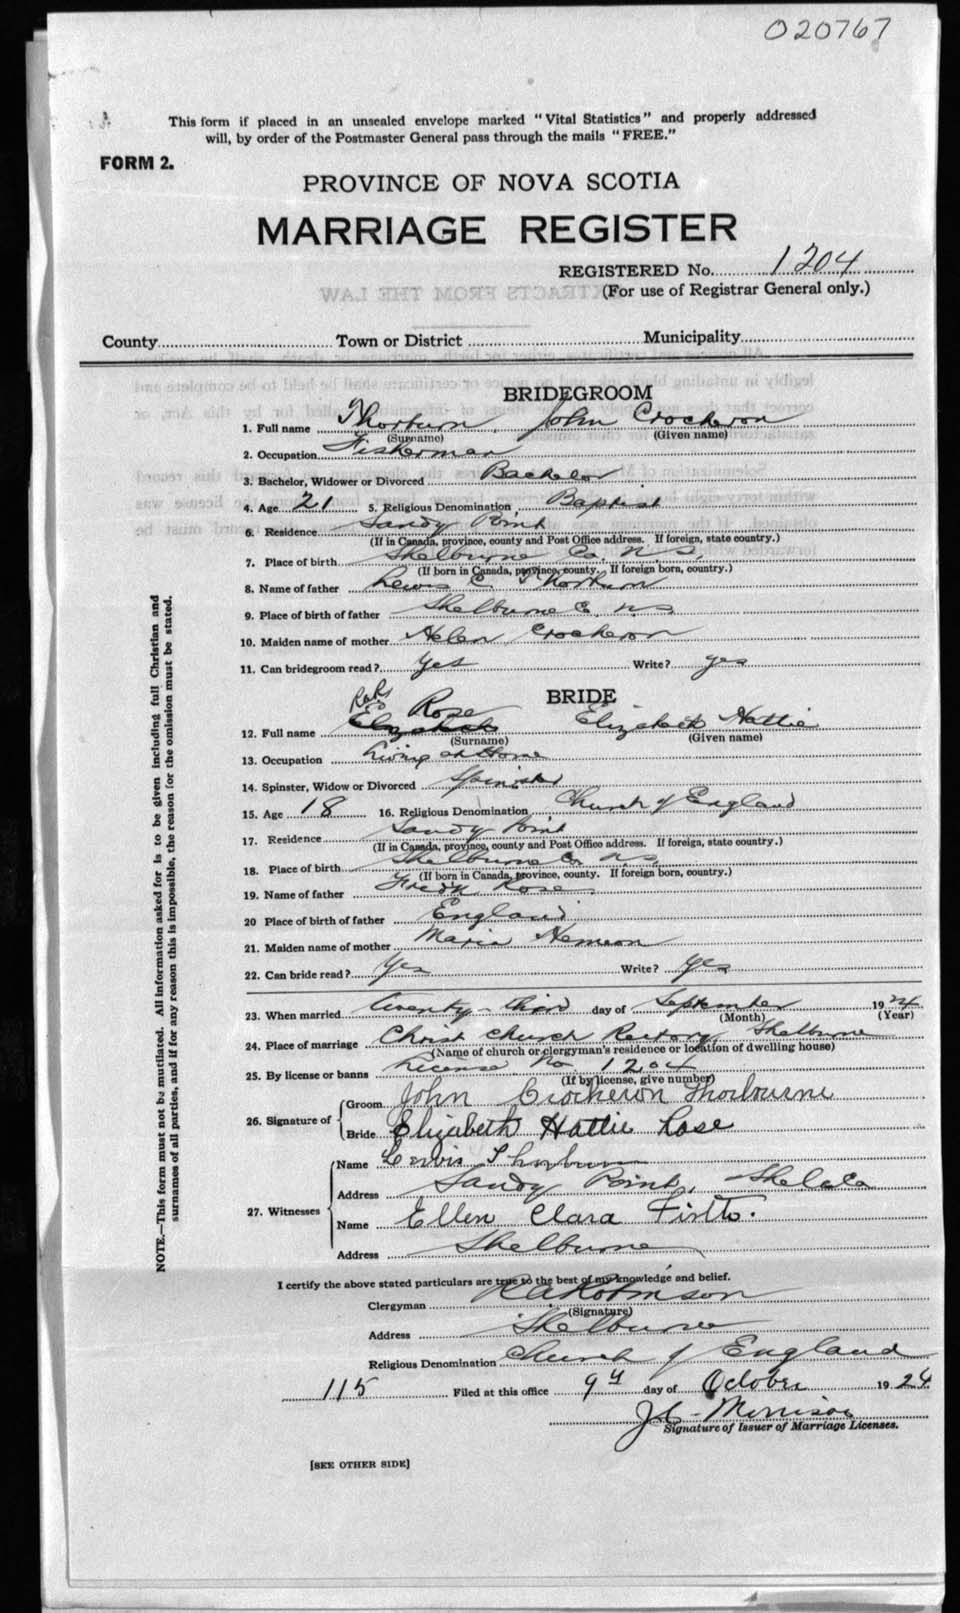 020767
This form if placed in an unsealed envelope marked "Vital Statistics" and properly addressed
will, by order of the Postmaster General pass through the mails "FREE."
FORM 2.
PROVINCE OF NOVA SCOTIA
MARRIAGE REGISTER
REGISTERED No. 1204
(For use of Registrar General only.)
County Town or District Municipality
BRIDEGROOM
1. Full name Thorburn, John Crockeron
(Surname) (Given name)
2. Occupation Fisherman
3. Bachelor, Widower or Divorced Bachelor
4. Age 21 5. Religious Denomination Baptist
6. Residence Sandy Point
(If in Canada, province, county and Post Office address. If foreign, state country.)
7. Place of birth Shelburne Co. N.S.
(If born in Canada, province, county. If foreign born, country.)
8. Name of father Lewis E. Thorburn
9. Place of birth of father Shelburne Co. N.S.
10. Maiden name of mother Helen Crockeron
11. Can bridegroom read? Yes Write? yes
BRIDE
12. Full name Rose Elizabeth Hattie
(Surname) (Given name)
13. Occupation Living at Home
14. Spinster, Widow or Divorced Spinster
15. Age 18 16. Religious Denomination Church of England
17. Residence Sandy Point
(If in Canada, province, county and Post Office address. If foreign, state country.)
18. Place of birth Shelburne Co. N.S.
(If born in Canada, province, county. If foreign born, country.)
19. Name of father Fredk Rose
20 Place of birth of father England
21. Maiden name of mother Maria Hemeon
22. Can bride read? Yes Write? Yes
23. When married twenty-third day of September 1924
(Month) (Year)
24. Place of marriage Christ Church Rectory, Shelburne
(Name of church or clergyman's residence or location of dwelling house)
25. By license or banns License No. 1204
(If by license, give number)
26. Signature of Groom John Crockeron Thorbourne
Bride Elizabeth Hattie Rose
27. Witnesses Name Lewis Thorburn
Address Sandy Point, Shel. Co
Name Ellen Clara Firth.
Address Shelburne
I certify the above stated particulars are true to the best of my knowledge and belief.
Clergyman Robinson
(Signature)
Address Shelburne
Religious Denomination Church of England
115 Filed at this office 9th day of October 1924
Morrison
Signature of Issuer of Marriage Licenses.
[SEE OTHER SIDE]
NOTE.—This form must not be mutilated. All information asked for is to be given including full Christian and
surnames of all parties, and if for any reason this is impossible, the reason for the omission must be stated.